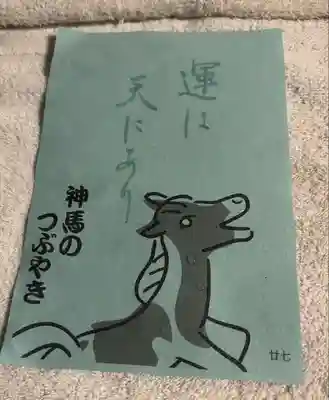 運は
天にあり
神馬の
つぶやき
廿七